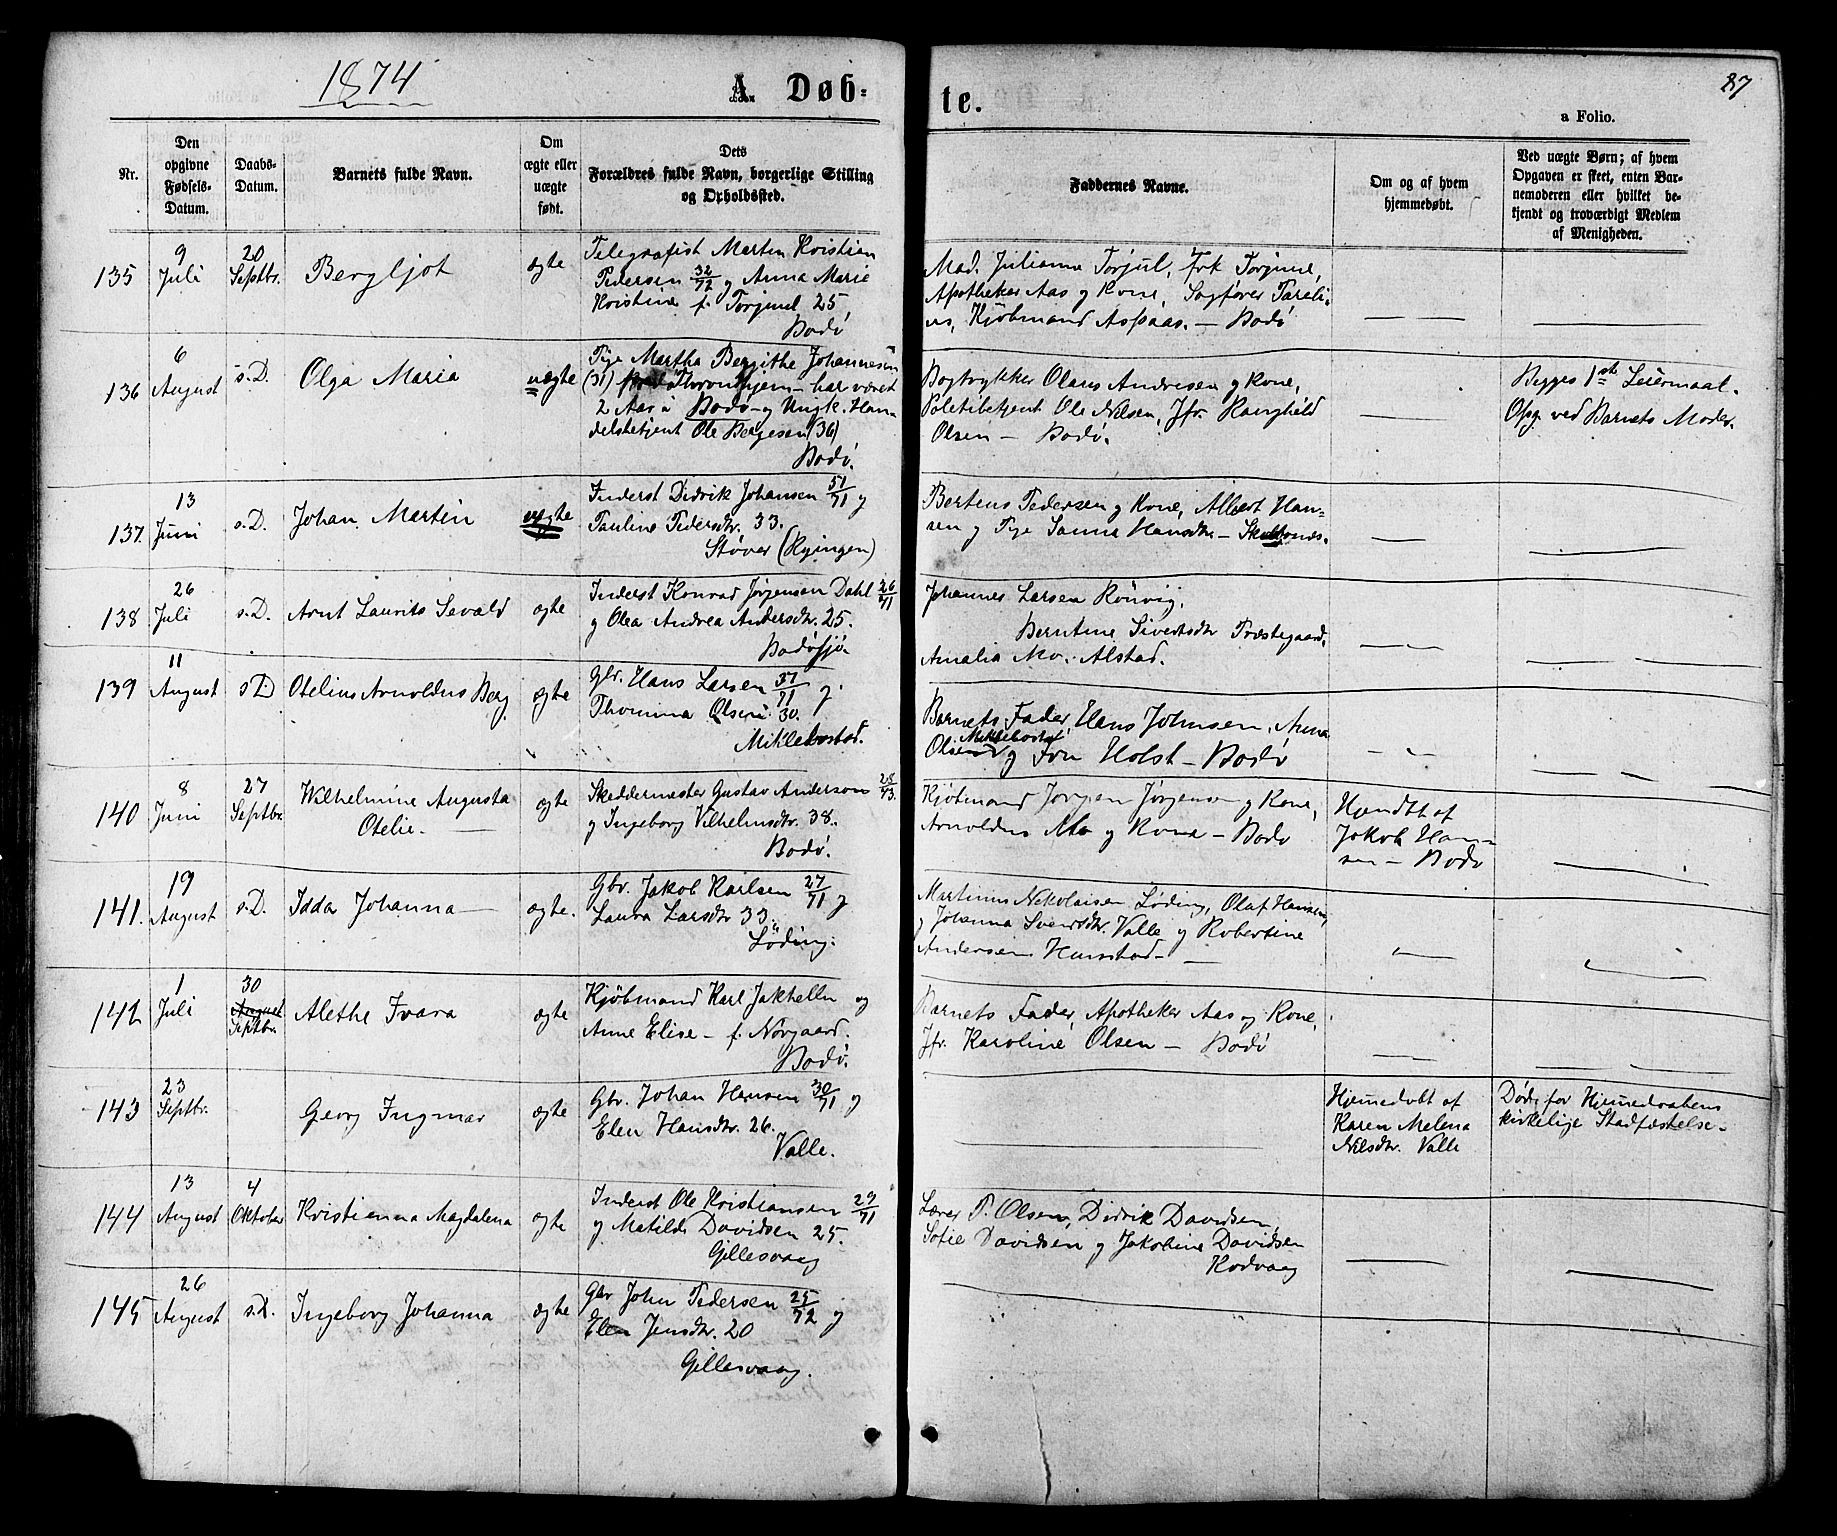 1874
A. Døb-
te.
87
a Folio.
Nr.
Den opgivne Fødsels-Datum.
Daabs-Datum.
Barnets fulde Navn.
Om ægte eller uægte født.
Dets Forældres fulde Navn, borgerlige Stilling og Opholdssted.
Faddernes Navne.
Om og af hvem hjemmedøbt.
Ved uægte Børn; af hvem Opgaven er skeet, enten Barnemoderen eller hvilket bekjendt og troværdigt Medlem af Menigheden.
135
9 Juli
20 Septbr.
Bergljot
ægte
Telegrafist Morten Kristian
Pedersen 32/72 og Anna Marie
Kristine f. Torjul 25,
Bodö
Mad. Julianna Torjul, Frk Torjul,
Apotheker Aas og Kone, Sagfører
Kjöbmand Aspaas. — Bodö
136
6 August
s.D.
Olga Maria
uægte
Pige Martha Bergithe Johannesen
(31) Throndhjem — har været
2 Aar i Bodö — og Ungk. Han-
delsbetjent Ole Bergesen (36)
Bodö.
Bogtrykker Olaus Andresen og Kone,
Politibetjent Ole Nilsen, Jfr. Ranghild
Olsen — Bodö.
Begges 1ste Leiermaal.
Opg. ved Barnets Moder.
137.
13 Juni
s.D.
Johan Martin
ægte
Inderst Didrik Johansen 51/71 og
Pauline Pedersdtr. 33.
Støver (Kjringen)
Bertens Pedersen og Kone, Albert Han-
sen og Pige Sanna Hansdtr —
138
26 Juli
s.D.
Arnt Laurits Sevald
ægte
Inderst Konrad Jørgensen Dahl 26/71
og Olea Andrea Andersdtr. 25.
Bodösjö.
Johannes Larsen Rönvig,
Berntine Sivertsdtr Præstegaard,
Amalia Mo. Alstad.
139
11 August
s D
Otelius Arnoldus Berg
ægte
Gbr. Hans Larsen 37/71 og
Thomina Olsen 30.
Miklebostad.
Barnets Fader, Hans Johnsen, Anna
Olsen Miklebostad og Fru Holst — Bodö
140
8 Juni
27 Septbr
Wilhelmine Augusta
Otelie. —
ægte
Skeddermester Gustav Anderson 28/73.
og Ingeborg Vilhelmsdtr. 38.
Bodö.
Kjöbmand Jørgen Jørgensen og Kone,
Arnoldus Mo og Kone — Bodö
Hjemdöbt af
Jakob Han-
sen — Bodö
141.
19 August
s.D.
Idda Johanna —
ægte.
Gbr. Jakob Karlsen 27/71 og
Laura Larsdtr 33.
Löding.
Martinus Nikolaisen Löding, Olaf Hansen,
og Johanna Sivertsdtr. Valle og Robertine
Andersen Hunstad —
142
1 Juli
30 August Septbr.
Alethe Ivara
ægte
Kjöbmand Karl Jakhelln og
Anne Elise — f. Norgaard.
Bodö.
Barnets Fader, Apotheker Aas og Kone,
Jfr. Karoline Olsen — Bodö
143
23 Septbr.
Georg Ingmar
ægte
Gbr. Johan Hansen 30/71 og
Elen Hansdtr. 26.
Valle.
Hjemedöbt af
Karen Melena
Nilsdtr. Valle
Döde för Hjemedaabens
kirkelige Stadfæstelse.
144
13 August
4 Oktober
Kristianna Magdalena
ægte
Inderst Ole Kristiansen 29/71
og Matilde Davidsen 25.
Gillesvaag
Lærer P. Olsen, Didrik Davidsen,
Sofie Davidsen og Jakobine Davidsen
Kodvaag
145
26 August
s.D.
Ingeborg Johanna
ægte
Gbr John Pedersen 25/72 og
Elen Jensdtr. 20
Gillesvaag.